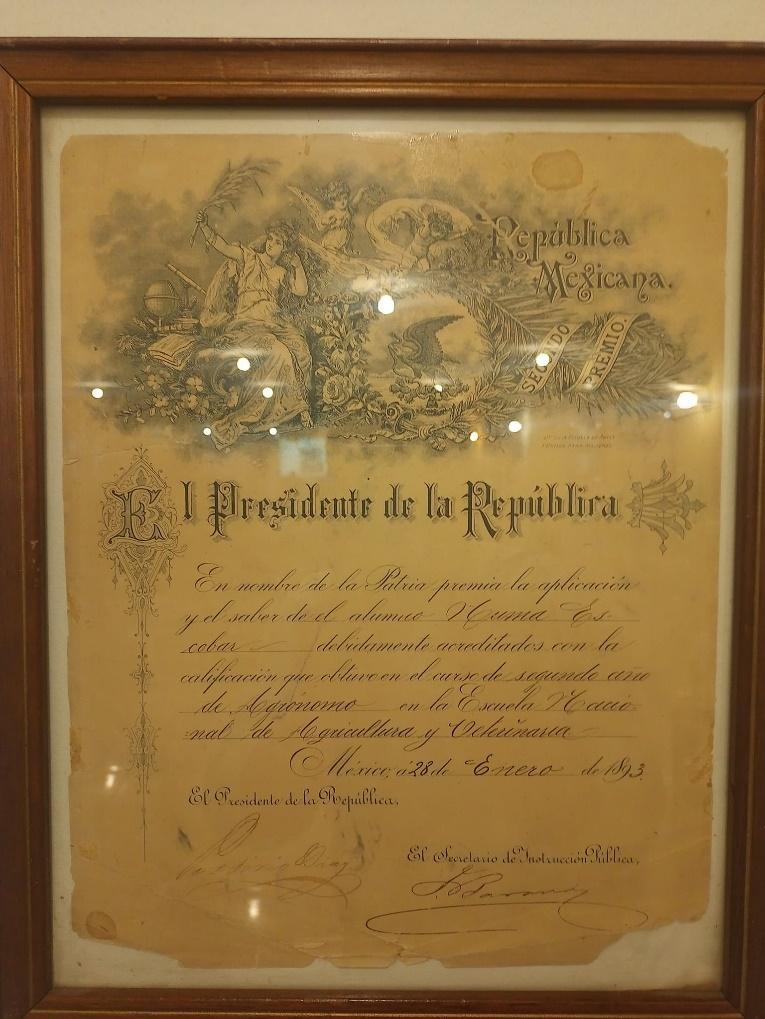 República
Mexicana.
SEGUNDO
PREMIO.
El Presidente de la República
En nombre de la Patria premia la aplicación
y el saber de el alumno Numa Es-
cobar debidamente acreditados con la
calificación que obtuvo en el curso de segundo año
de Agrónomo en la Escuela Nacio-
nal de Agricultura y Veterinaria
México, á 28 de Enero de 1893.
El Presidente de la República,
Porfirio Diaz
El Secretario de Instrucción Pública,